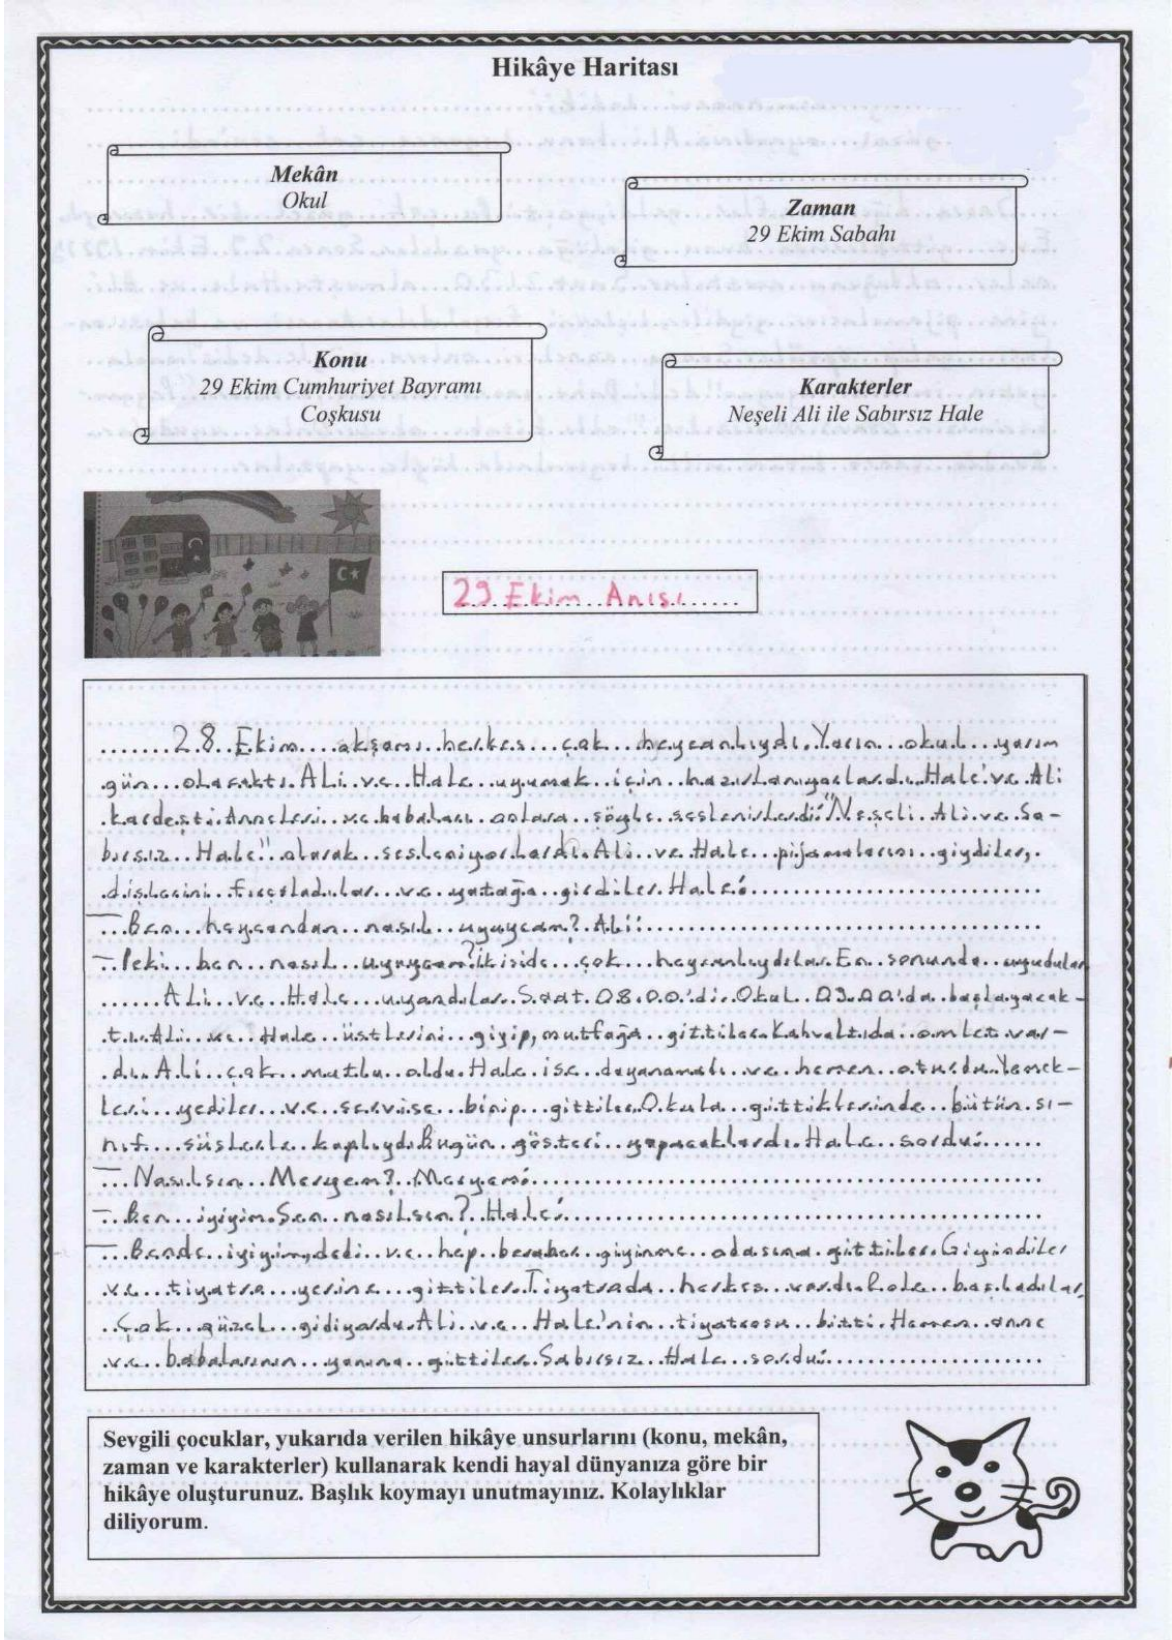 Hikâye Haritası
Mekân
Okul
Zaman
29 Ekim Sabahı
Konu
29 Ekim Cumhuriyet Bayramı
Coşkusu
Karakterler
Neşeli Ali ile Sabırsız Hale
29 Ekim Anısı
28 Ekim akşamı herkes çok heycanlıydı. Yarın okul yarım
gün olacaktı. Ali ve Hale uyumak için hazırlanıyorlardı. Hale've Ali
kardeşti. Anneleri ve babaları onlara şöyle seslenirlerdi: "Neşeli Ali ve Sa-
bırsız Hale" olarak sesleniyorlardı. Ali ve Hale pijamalarını giydiler,
dişlerini fırçaladılar ve yatağa girdiler. Hale:
– Ben heycandan nasıl uyuycam? Ali:
– Peki ben nasıl uyuycam? İkiside çok heycanlıydılar. En sonunda uyudular
Ali ve Hale uyandılar. Saat 08.00'di. Okul 09.00'da başlayacak-
tı. Ali ve Hale üstlerini giyip, mutfağa gittiler. Kahvaltıda omlet var-
dı. Ali çok mutlu oldu. Hale ise dayanamadı ve hemen oturdu. Yemek-
leri yediler ve servise binip gittiler. Okula gittiklerinde bütün sı-
nıf süslerle kaplıydı. Bugün gösteri yapacaklardı. Hale sordu:
– Nasılsın Meryem? Meryem:
– Ben iyiyim. Sen nasılsın? Hale:
– Bende iyiyim, dedi ve hep beraber giyinme odasına gittiler. Giyindiler
ve tiyatro yerine gittiler. Tiyatroda herkes vardı. Role başladılar.
Çok güzel gidiyordu. Ali ve Hale'nin tiyatrosu bitti. Hemen anne
ve babalarının yanına gittiler. Sabırsız Hale sordu:
Sevgili çocuklar, yukarıda verilen hikâye unsurlarını (konu, mekân,
zaman ve karakterler) kullanarak kendi hayal dünyanıza göre bir
hikâye oluşturunuz. Başlık koymayı unutmayınız. Kolaylıklar
diliyorum.